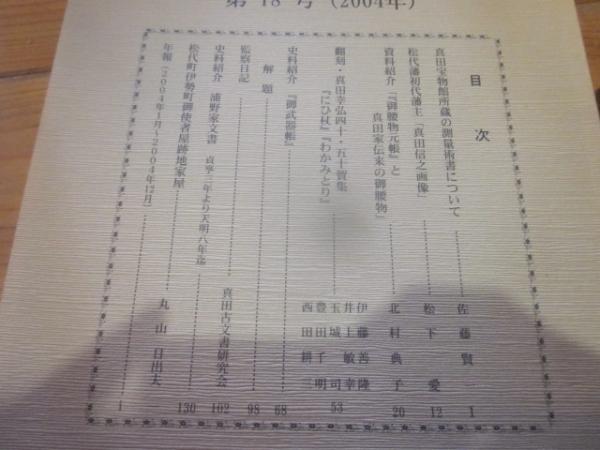 第 18 号 (2004年)
目 次
真田宝物館所蔵の測量術書について 佐藤賢一 1
松代藩初代藩主「真田信之画像」 松下愛 12
資料紹介「『御腰物元帳』と
真田家伝来の御腰物」 北村典子 20
翻刻・真田幸弘四十・五十賀集
『にひ杖』『わかみとり』 伊藤善隆
井上敏幸
玉城司 53
豊田千明
西田耕三
史料紹介 『御武器帳』 68
解題
監察日記 98
史料紹介 浦野家文書 貞享二年より天明八年迄 真田古文書研究会 102
松代町伊勢町御使者屋跡地家屋 丸山日出夫 130
年報(2004年1月~2004年12月) 1